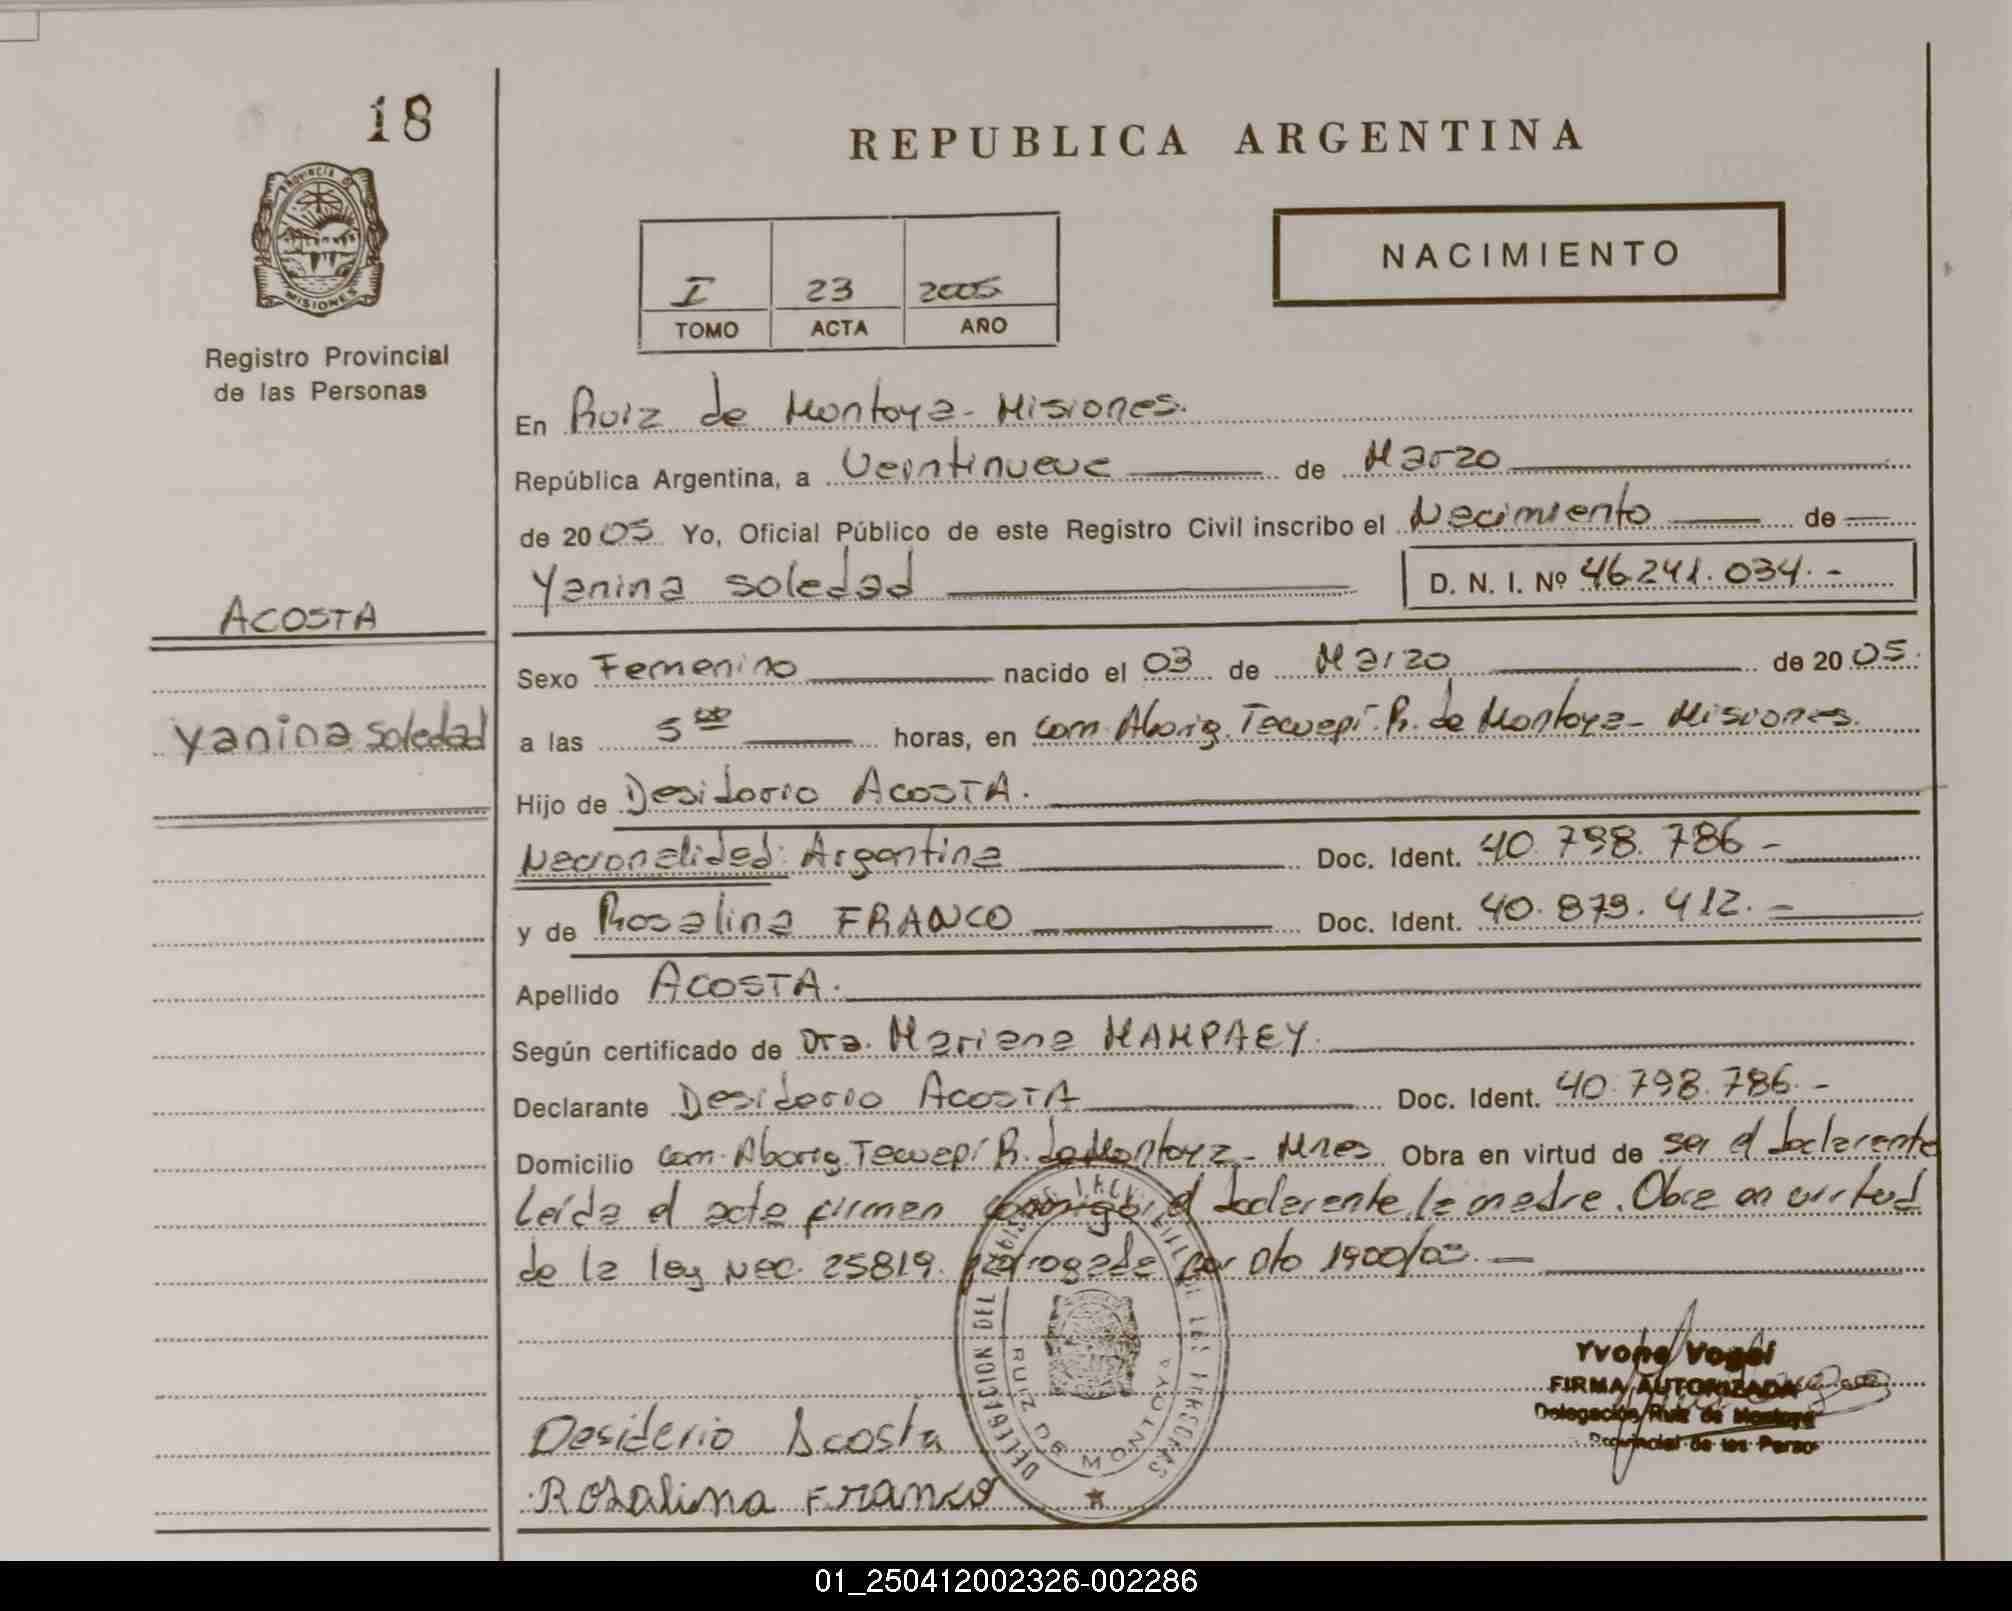 18
REPUBLICA ARGENTINA
PROVINCIA DE
MISIONES
NACIMIENTO
I 23 2005
TOMO ACTA AÑO
Registro Provincial
de las Personas
En Ruiz de Montoya - Misiones.
República Argentina, a Veintinueve de Marzo
de 2005 Yo, Oficial Público de este Registro Civil inscribo el Nacimiento de
Yanina Soledad D. N. I. Nº 46.241.034.-
ACOSTA
Yanina Soledad
Sexo Femenino nacido el 03 de Marzo de 2005.
a las 5 00 horas, en Com. Aborig. Tecuepí. R. de Montoya - Misiones.
Hijo de Desiderio ACOSTA.
Nacionalidad: Argentina Doc. Ident. 40.798.786-
y de Rosalina FRANCO Doc. Ident. 40.879.412.-
Apellido ACOSTA.
Según certificado de Dra. Mariana MAMPAEY.
Declarante Desiderio ACOSTA Doc. Ident. 40.798.786.-
Domicilio Com. Aborig. Tecuepí R. de Montoya - Mnes Obra en virtud de ser el declarante
Leída el acta firman conmigo, el declarante, la madre. Obra en virtud
de la ley Nac. 25819. prorrogada por Dto 1900/03.-
DELEGACION DEL REGISTRO PROVINCIAL DE LAS PERSONAS
RUIZ DE MONTOYA
Yvone Vogel
FIRMA AUTORIZADA
Delegación Ruiz de Montoya
Provincial de las Perso
Desiderio Acosta
Rosalina Franco
01_250412002326-002286